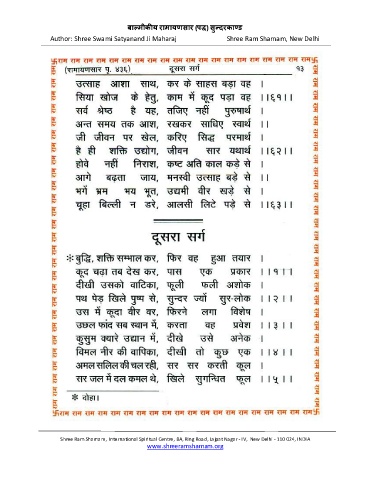 बाल्मीकीय रामायणसार (पद्य) सुन्दरकाण्ड
Author: Shree Swami Satyanand Ji Maharaj Shree Ram Sharnam, New Delhi
卐राम राम राम राम राम राम राम राम राम राम राम राम राम राम राम राम राम राम राम राम卐
(रामायणसार पृ. ४३६) दूसरा सर्ग १३
उत्साह आशा साथ, कर के साहस बड़ा वह ।
सिया खोज के हेतु, काम में कूद पड़ा वह ।।६१।।
सर्व श्रेष्ठ है यह, तजिए नहीं पुरुषार्थ ।
अन्त समय तक आश, रखकर साधिए स्वार्थ ।।
जी जीवन पर खेल, करिए सिद्ध परमार्थ ।
है ही शक्ति उद्योग, जीवन सार यथार्थ ।।६२।।
होवे नहीं निराश, कष्ट अति काल कड़े से ।
आगे बढ़ता जाय, मनस्वी उत्साह बड़े से ।।
भगें भ्रम भय भूत, उद्यमी वीर खड़े से ।
चूहा बिल्ली न डरे, आलसी लिटे पड़े से ।।६३।।
दूसरा सर्ग
*बुद्धि, शक्ति सम्भाल कर, फिर वह हुआ तयार ।
कूद चढ़ा तब देख कर, पास एक प्रकार ।।१।।
दीखी उसको वाटिका, फूली फली अशोक ।
पथ पेड़ खिले पुष्प से, सुन्दर ज्यों सुर-लोक ।।२।।
उस में कूदा वीर वर, फिरने लगा विशेष ।
उछल फांद सब स्थान में, करता वह प्रवेश ।।३।।
कुसुम क्यारे उद्यान में, दीखे उसे अनेक ।
विमल नीर की वापिका, दीखी तो कुछ एक ।।४।।
अमल सलिल की चल रही, सर सर करती कूल ।
सर जल में दल कमल थे, खिले सुगन्धित फूल ।।५।।
* दोहा।
卐राम राम राम राम राम राम राम राम राम राम राम राम राम राम राम राम राम राम राम राम卐
Shree Ram Sharnam, International Spiritual Centre, 8A, Ring Road, Lajpat Nagar - IV, New Delhi - 110 024, INDIA
www.shreeramsharnam.org